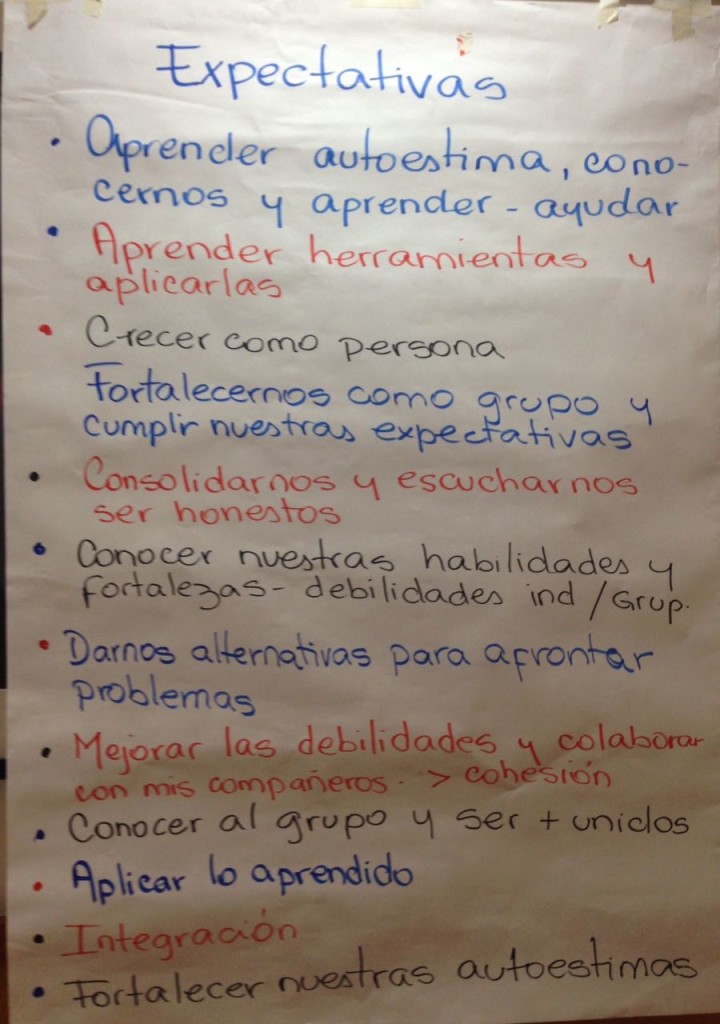 Expectativas
• Aprender autoestima, cono-
cernos y aprender - ayudar
• Aprender herramientas y
aplicarlas
• Crecer como persona
Fortalecernos como grupo y
cumplir nuestras expectativas
• Consolidarnos y escucharnos
ser honestos
• Conocer nuestras habilidades y
fortalezas - debilidades ind / Grup.
• Darnos alternativas para afrontar
problemas
• Mejorar las debilidades y colaborar
con mis compañeros. > cohesión
• Conocer al grupo y ser + unidos
• Aplicar lo aprendido
• Integración
• Fortalecer nuestras autoestimas